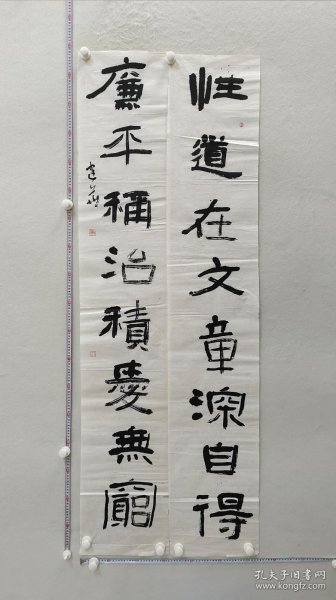 性道在文章深自得
廉平稱治積慶無窮
孔夫子旧书网
www.kongfz.com